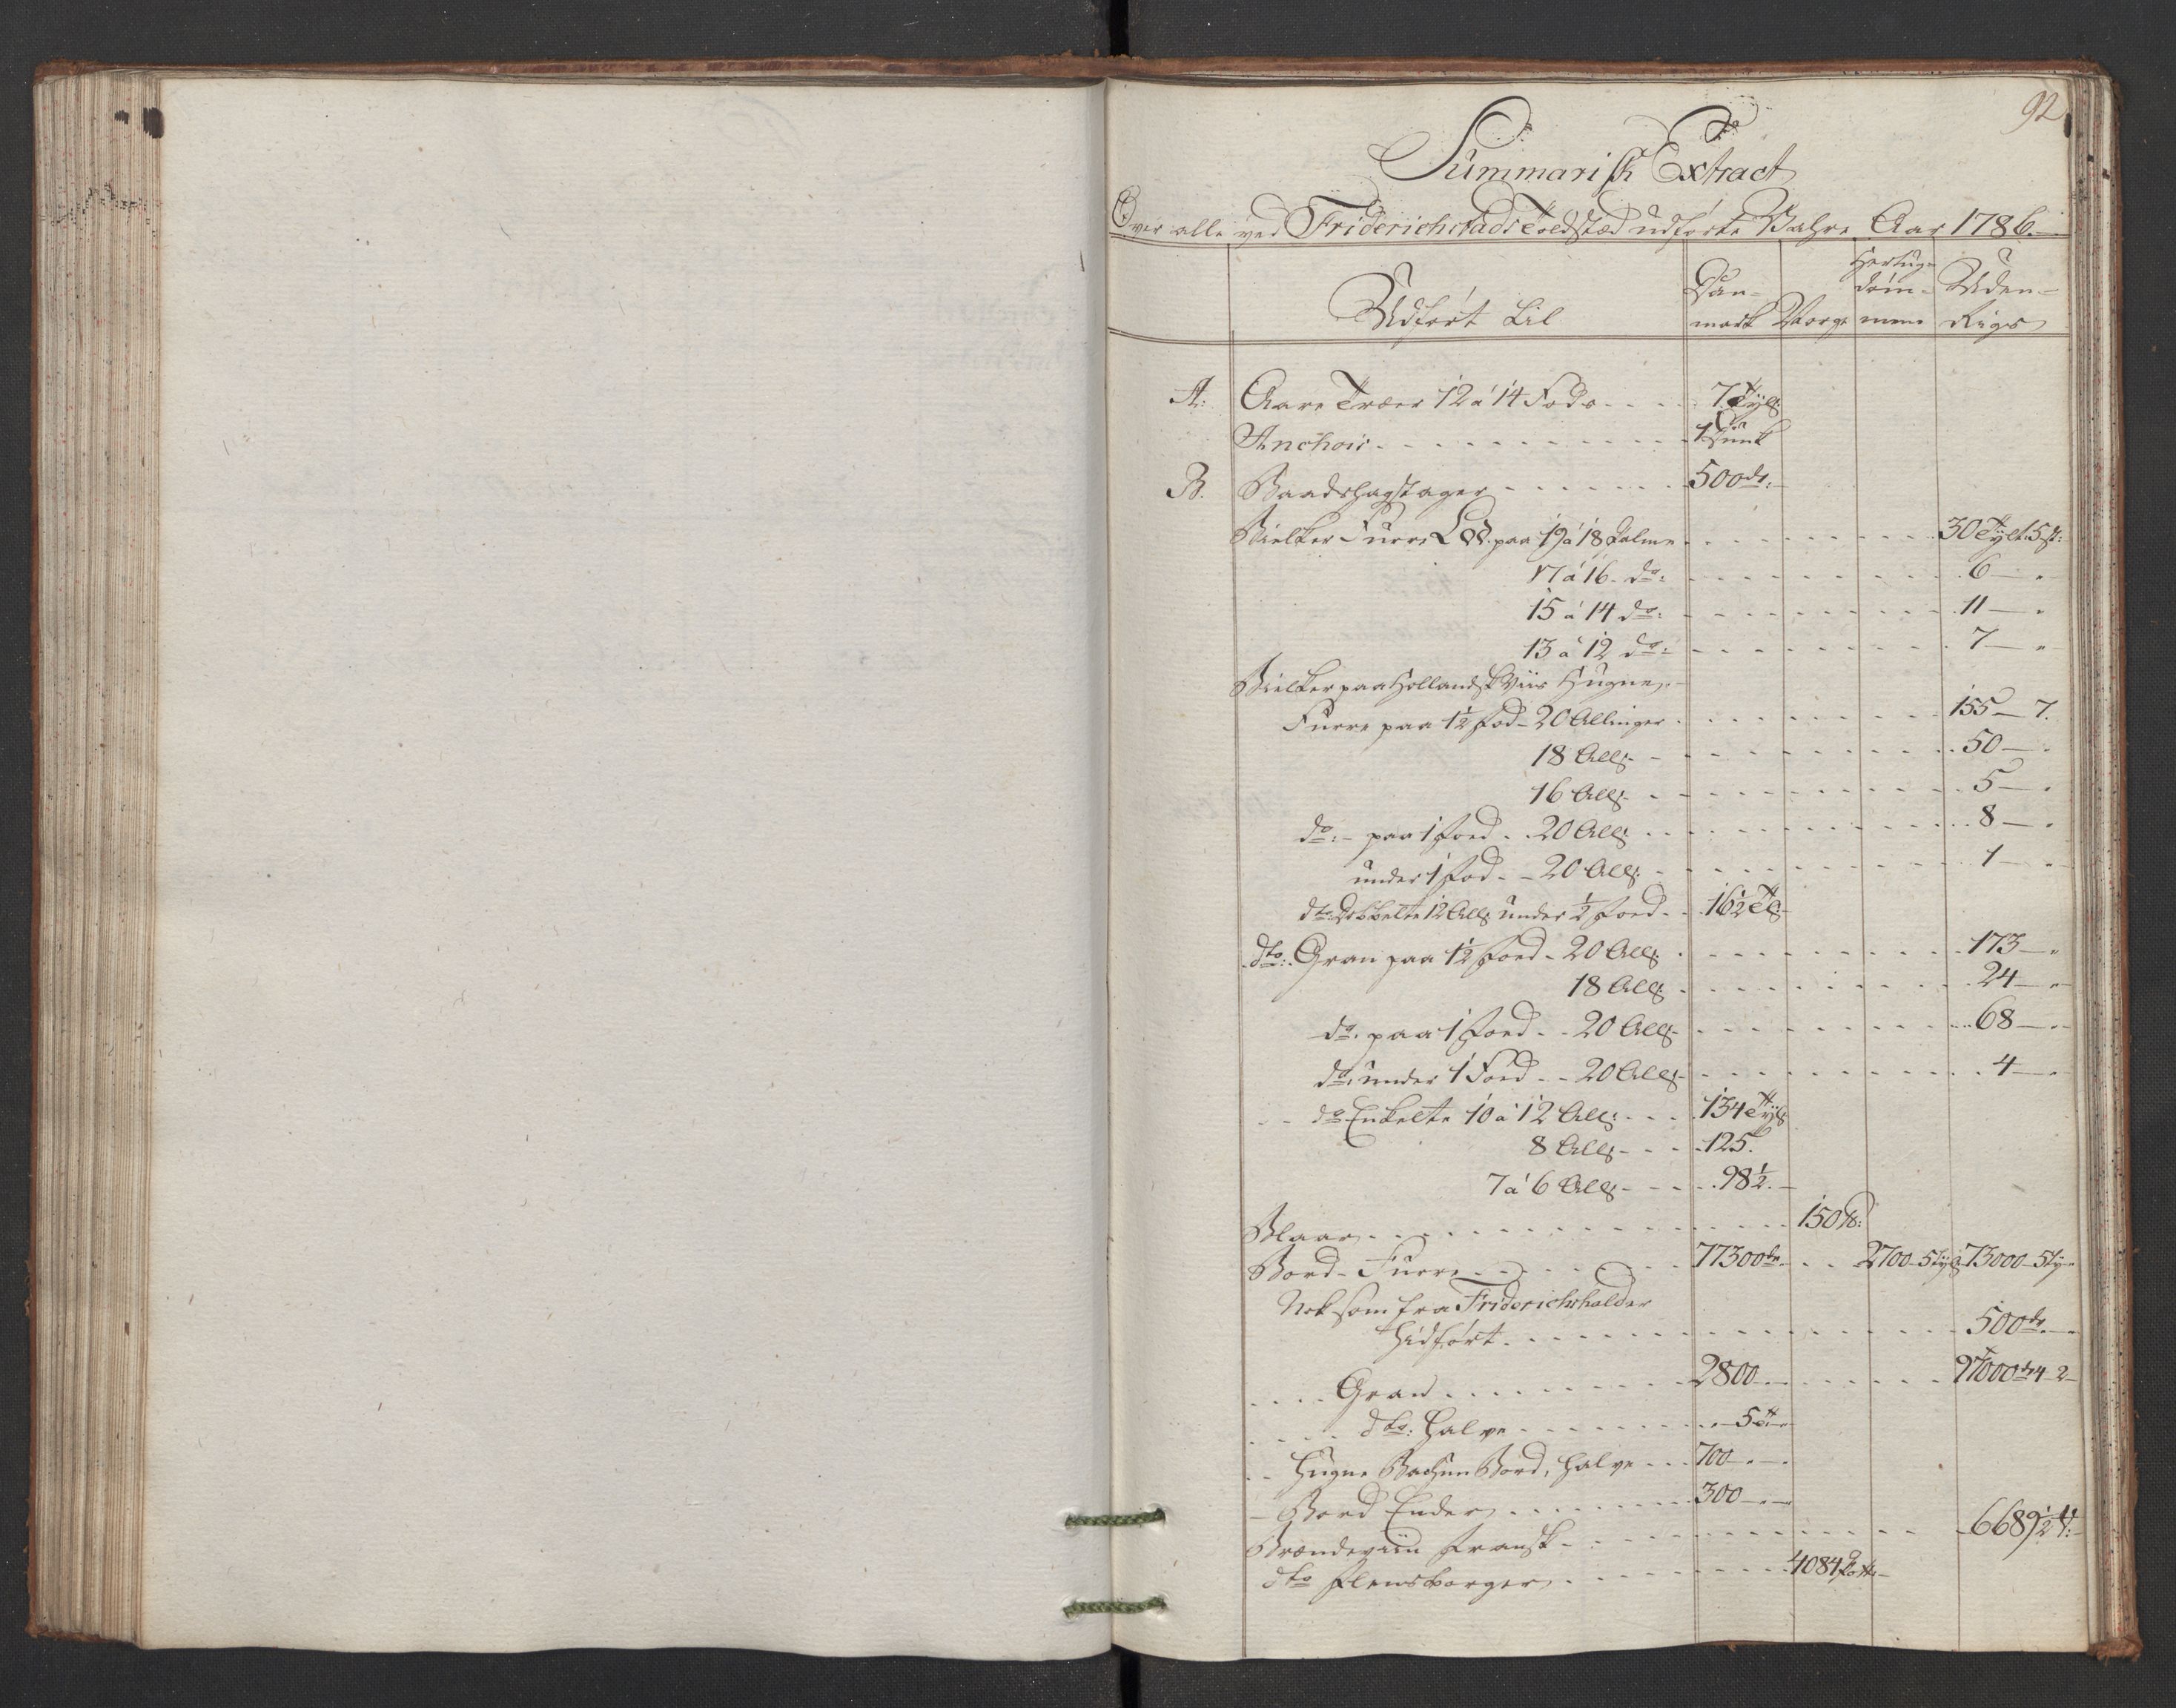 92
Summarisk Extract
Over alle ved Friderichstads Toldsted udførte Wahre Aar 1786.
Udført til | Dan-mark | Norge | Hertugdöm-mene | Uden-Rigs
A: Aare Træer 12 á 14 Fods - - - - 7 Tylt
Anchois - - - - 1 Punt
B. Baadshagstager - - - - 500 st:
Bielker Furre paa 19 á 18 Palme - - - - 30 Tylt. 5 st:
17 á 16 do: - - - - 6 — "
15 á 14 do: - - - - 11 — "
13 á 12 do: - - - - 7 — "
Bielker paa Hollandsk Viis Hugne,
Furre paa 1½ Fod - 20 Allinger - - - - 155 — 7.
18 All: - - - - 50 — "
16 All: - - - - 5 — "
do: - paa 1 Foed - - 20 All: - - - - 8 — "
under 1 Fod - - 20 All: - - - - 1 — "
dto: Dobbelte 12 All: under ½ Foed - - 16½ T
dto: Gran paa 1½ Foed - 20 All: - - - - 173 — "
18 All: - - - - 24 — "
do: paa 1 Foed - - 20 All: - - - - 68 — "
do: under 1 Foed - - 20 All: - - - - 4 — "
- - do Enkelte 10 á 12 All: - - - 134 Tylt
8 All: - - - 125.
7 á 6 All: - - - - 98½. —
Blaar - - - - 150 ℔:
Bord - Furre - - - - 77300 st - - - 2700 - 5 tyl 73000 - 5 ty -
Nok som fra Friderichshalder
hidført - - - - 500 st. — "
- - - - Gran - - - - 2800 — - - - - 97000 st 4 - 2 -
- - - - dto: halve - - - - 5 T —
- - Hugne Bord, halve - - - 700 — " —
— Bord Ender - - - - 300 — " —
Brændeviin Fransk - - - - 6689½ :
dto Flensborger - - - - 4084 Potter